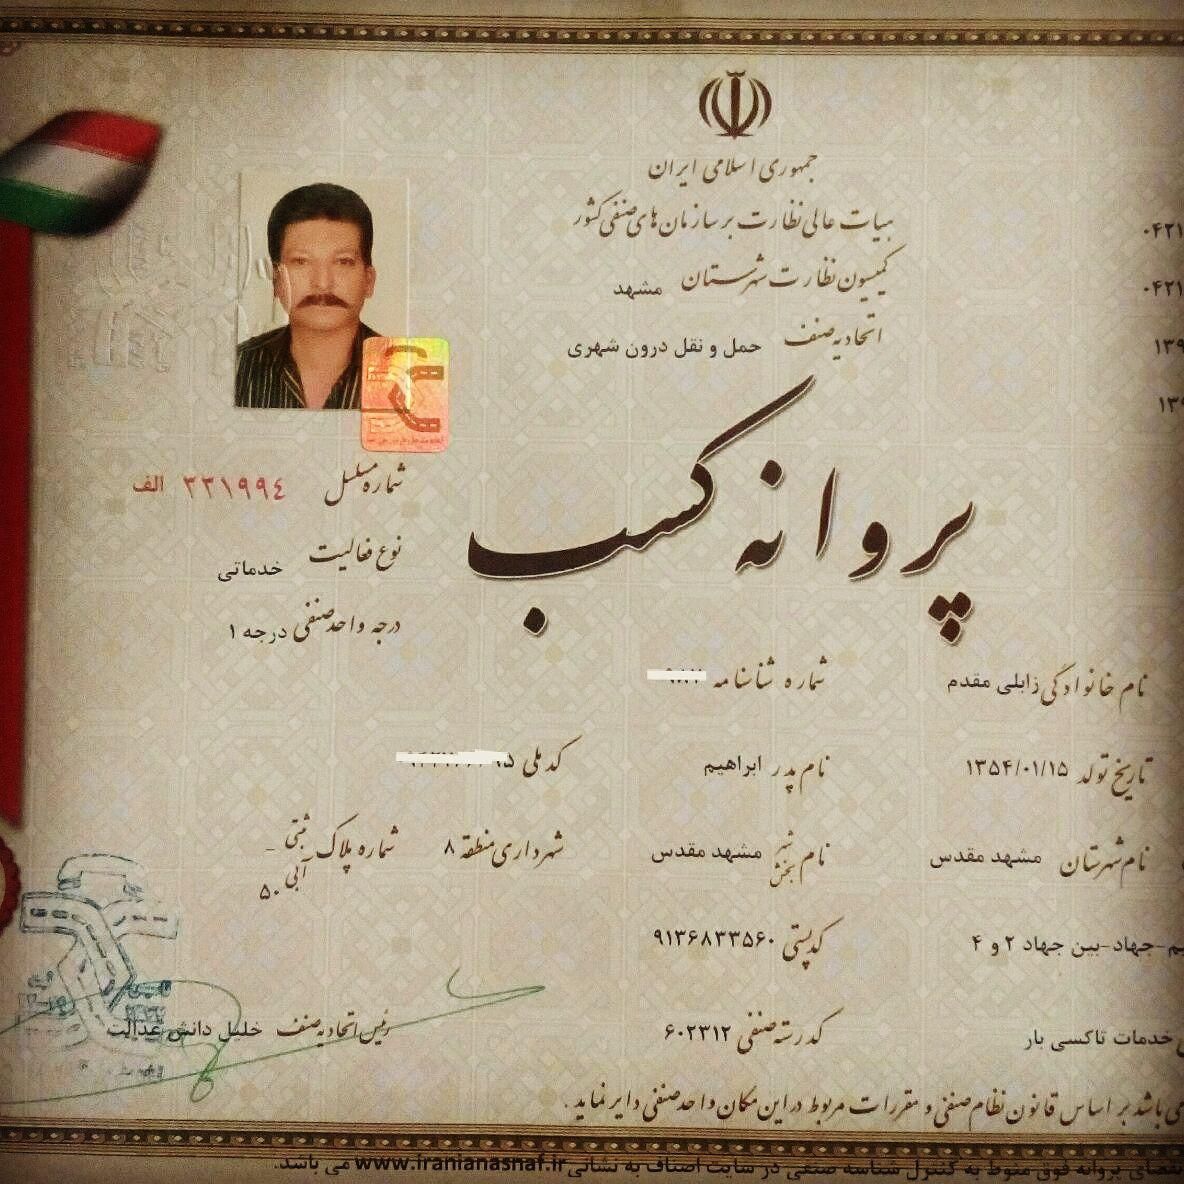 جمهوری اسلامی ایران
هیات عالی نظارت بر سازمان های صنفی کشور
کمیسیون نظارت شهرستان مشهد
اتحادیه صنف حمل و نقل درون شهری
۰۴۲۱
۰۴۲۱
۱۳۹
۱۳۹
پروانه کسب
شماره مسلسل ۳۳۱۹۹۴ الف
نوع فعالیت خدماتی
درجه واحد صنفی درجه ۱
نام خانوادگی زابلی مقدم شماره شناسنامه
تاریخ تولد ۱۳۵۴/۰۱/۱۵ نام پدر ابراهیم کد ملی
نام شهرستان مشهد مقدس نام شهر بخش مشهد مقدس شهرداری منطقه ۸ شماره پلاک ثبتی -
آبی ۵۰
-جهاد-بین جهاد ۲ و ۴ کد پستی ۹۱۳۶۸۳۳۵۶۰
خدمات تاکسی بار کد رسته صنفی ۶۰۲۳۱۲ رئیس اتحادیه صنف خلیل دانش عدالت
می باشد بر اساس قانون نظام صنفی و مقررات مربوط در این مکان واحد صنفی دایر نماید .
پروانه فوق منوط به کنترل شناسه صنفی در سایت اصناف به نشانی www.iranianasnaf.ir می باشد.